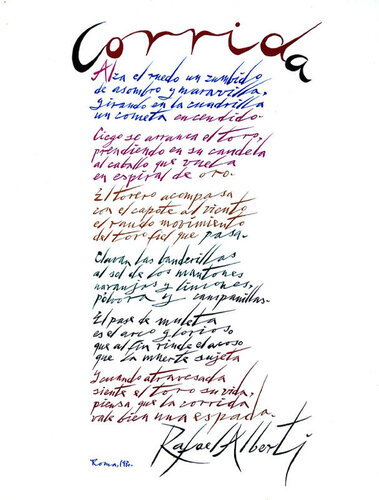 Corrida
Alza el ruedo un zumbido
de asombro y maravilla,
girando en la cuadrilla
un cometa encendido.
Ciego se arranca el toro,
prendiendo en su candela
al caballo que vuela
en espiral de oro.
El torero acompasa
con el capote al viento
el raudo movimiento
del toro fiel que pasa.
Clavan las banderillas
al sol de los mantones
naranjas y limones,
pólvora y campanillas.
El pase de muleta
es el arco glorioso
que al fin rinde el acoso
que la muerte sujeta
Y cuando atravesada
siente el toro su vida,
piensa que la corrida
vale bien una espada.
Rafael Alberti
Roma,